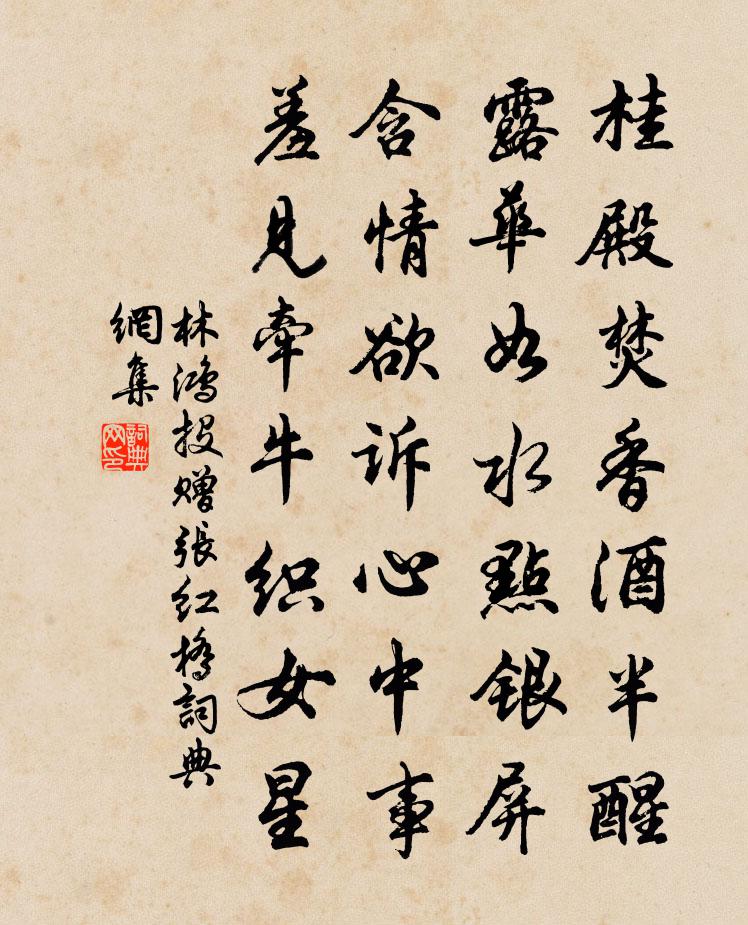 桂殿焚香酒半醒
露華如水點銀屏
含情欲訴心中事
羞見牽牛織女星
林鴻投贈張紅橋詞典
網集
詞典
网印